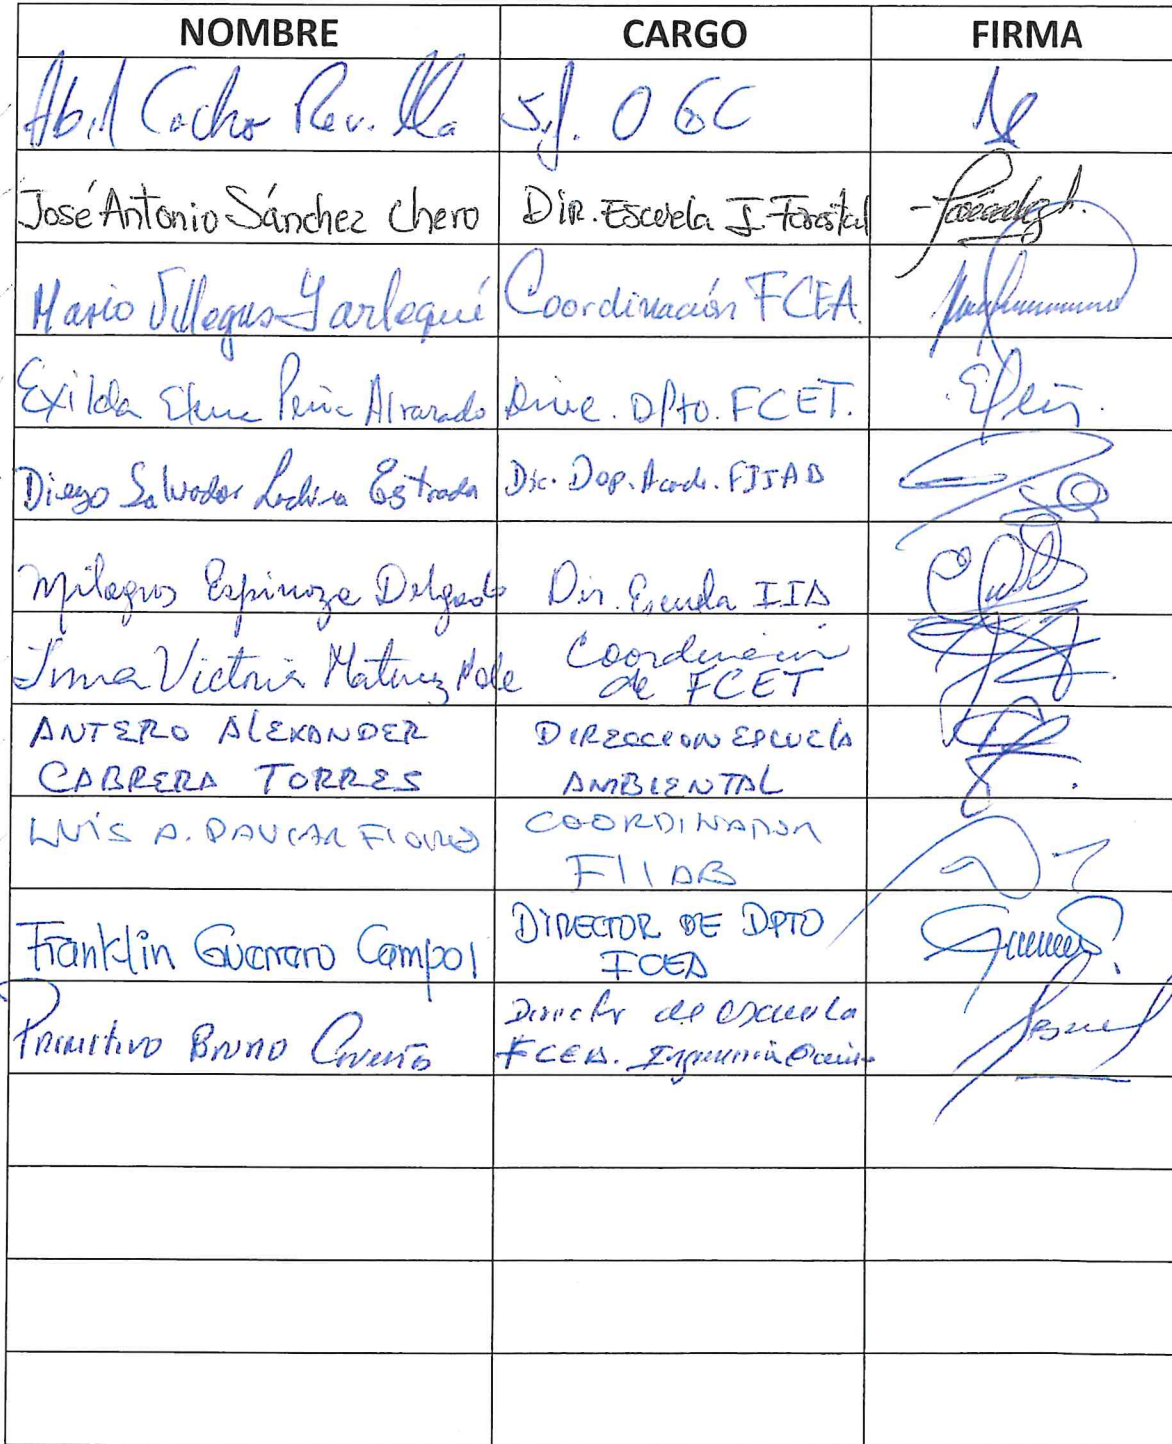 NOMBRE CARGO FIRMA
Abil Cacho Revilla Jf. OGC
José Antonio Sánchez Chero Dir. Escuela I. Forestal
Mario Villegas Yarlequé Coordinación FCEA
Exilda Elena Peña Alvarado Dire. Dpto. FCET.
Diego Salvador Estrada Dir. Dep. Acad. FIIAB
Milagros Espinoza Delgado Dir. Escuela IIA
Victoria Coordinación
de FCET
ANTERO ALEXANDER DIRECCION ESCUELA
CABRERA TORRES AMBIENTAL
LUIS A. PAUCAR FLORES COORDINADOR
FIIAB
Franklin Guerrero Campos DIRECTOR DE DPTO
FCEA
Primitivo Bruno Director de escuela
FCEA. Ingeniería